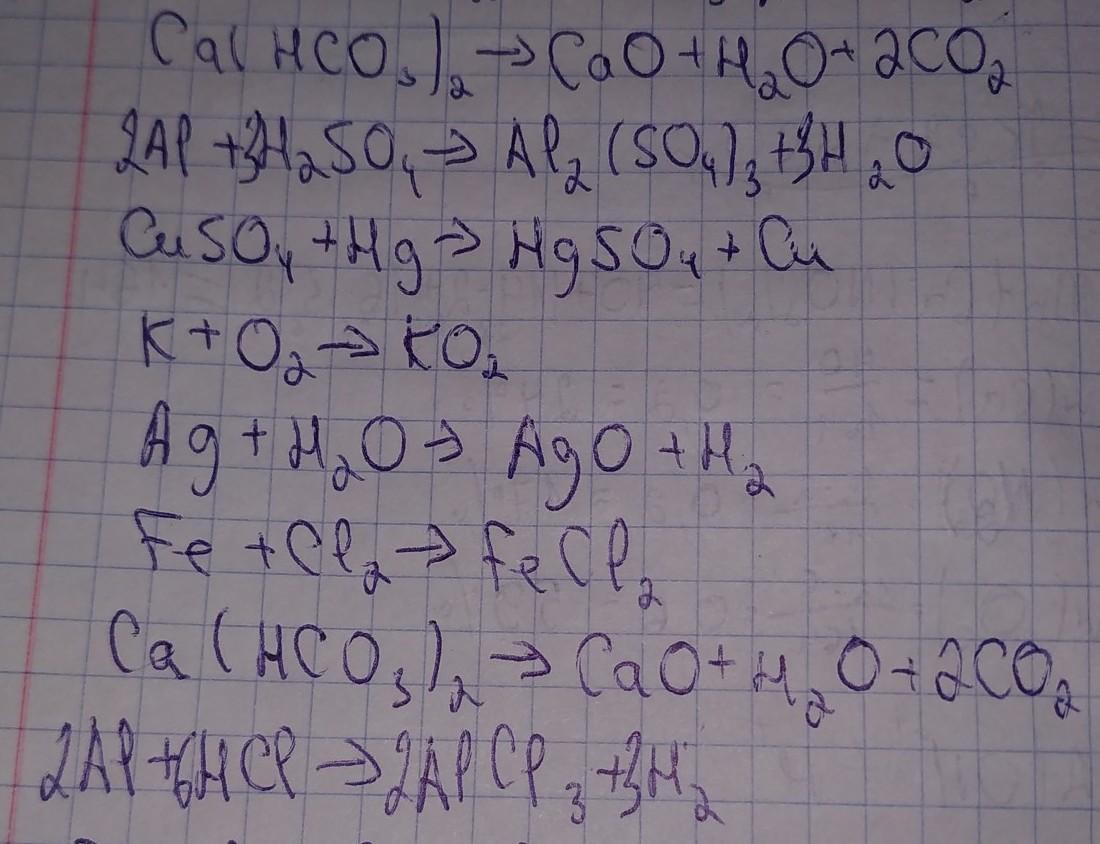 Ca(HCO₃)₂ → CaO + H₂O + 2CO₂
2Al + 3H₂SO₄ → Al₂(SO₄)₃ + 3H₂O
CuSO₄ + Hg → HgSO₄ + Cu
K + O₂ → KO₂
Ag + H₂O → AgO + H₂
Fe + Cl₂ → FeCl₂
Ca(HCO₃)₂ → CaO + H₂O + 2CO₂
2Al + 6HCl → 2AlCl₃ + 3H₂